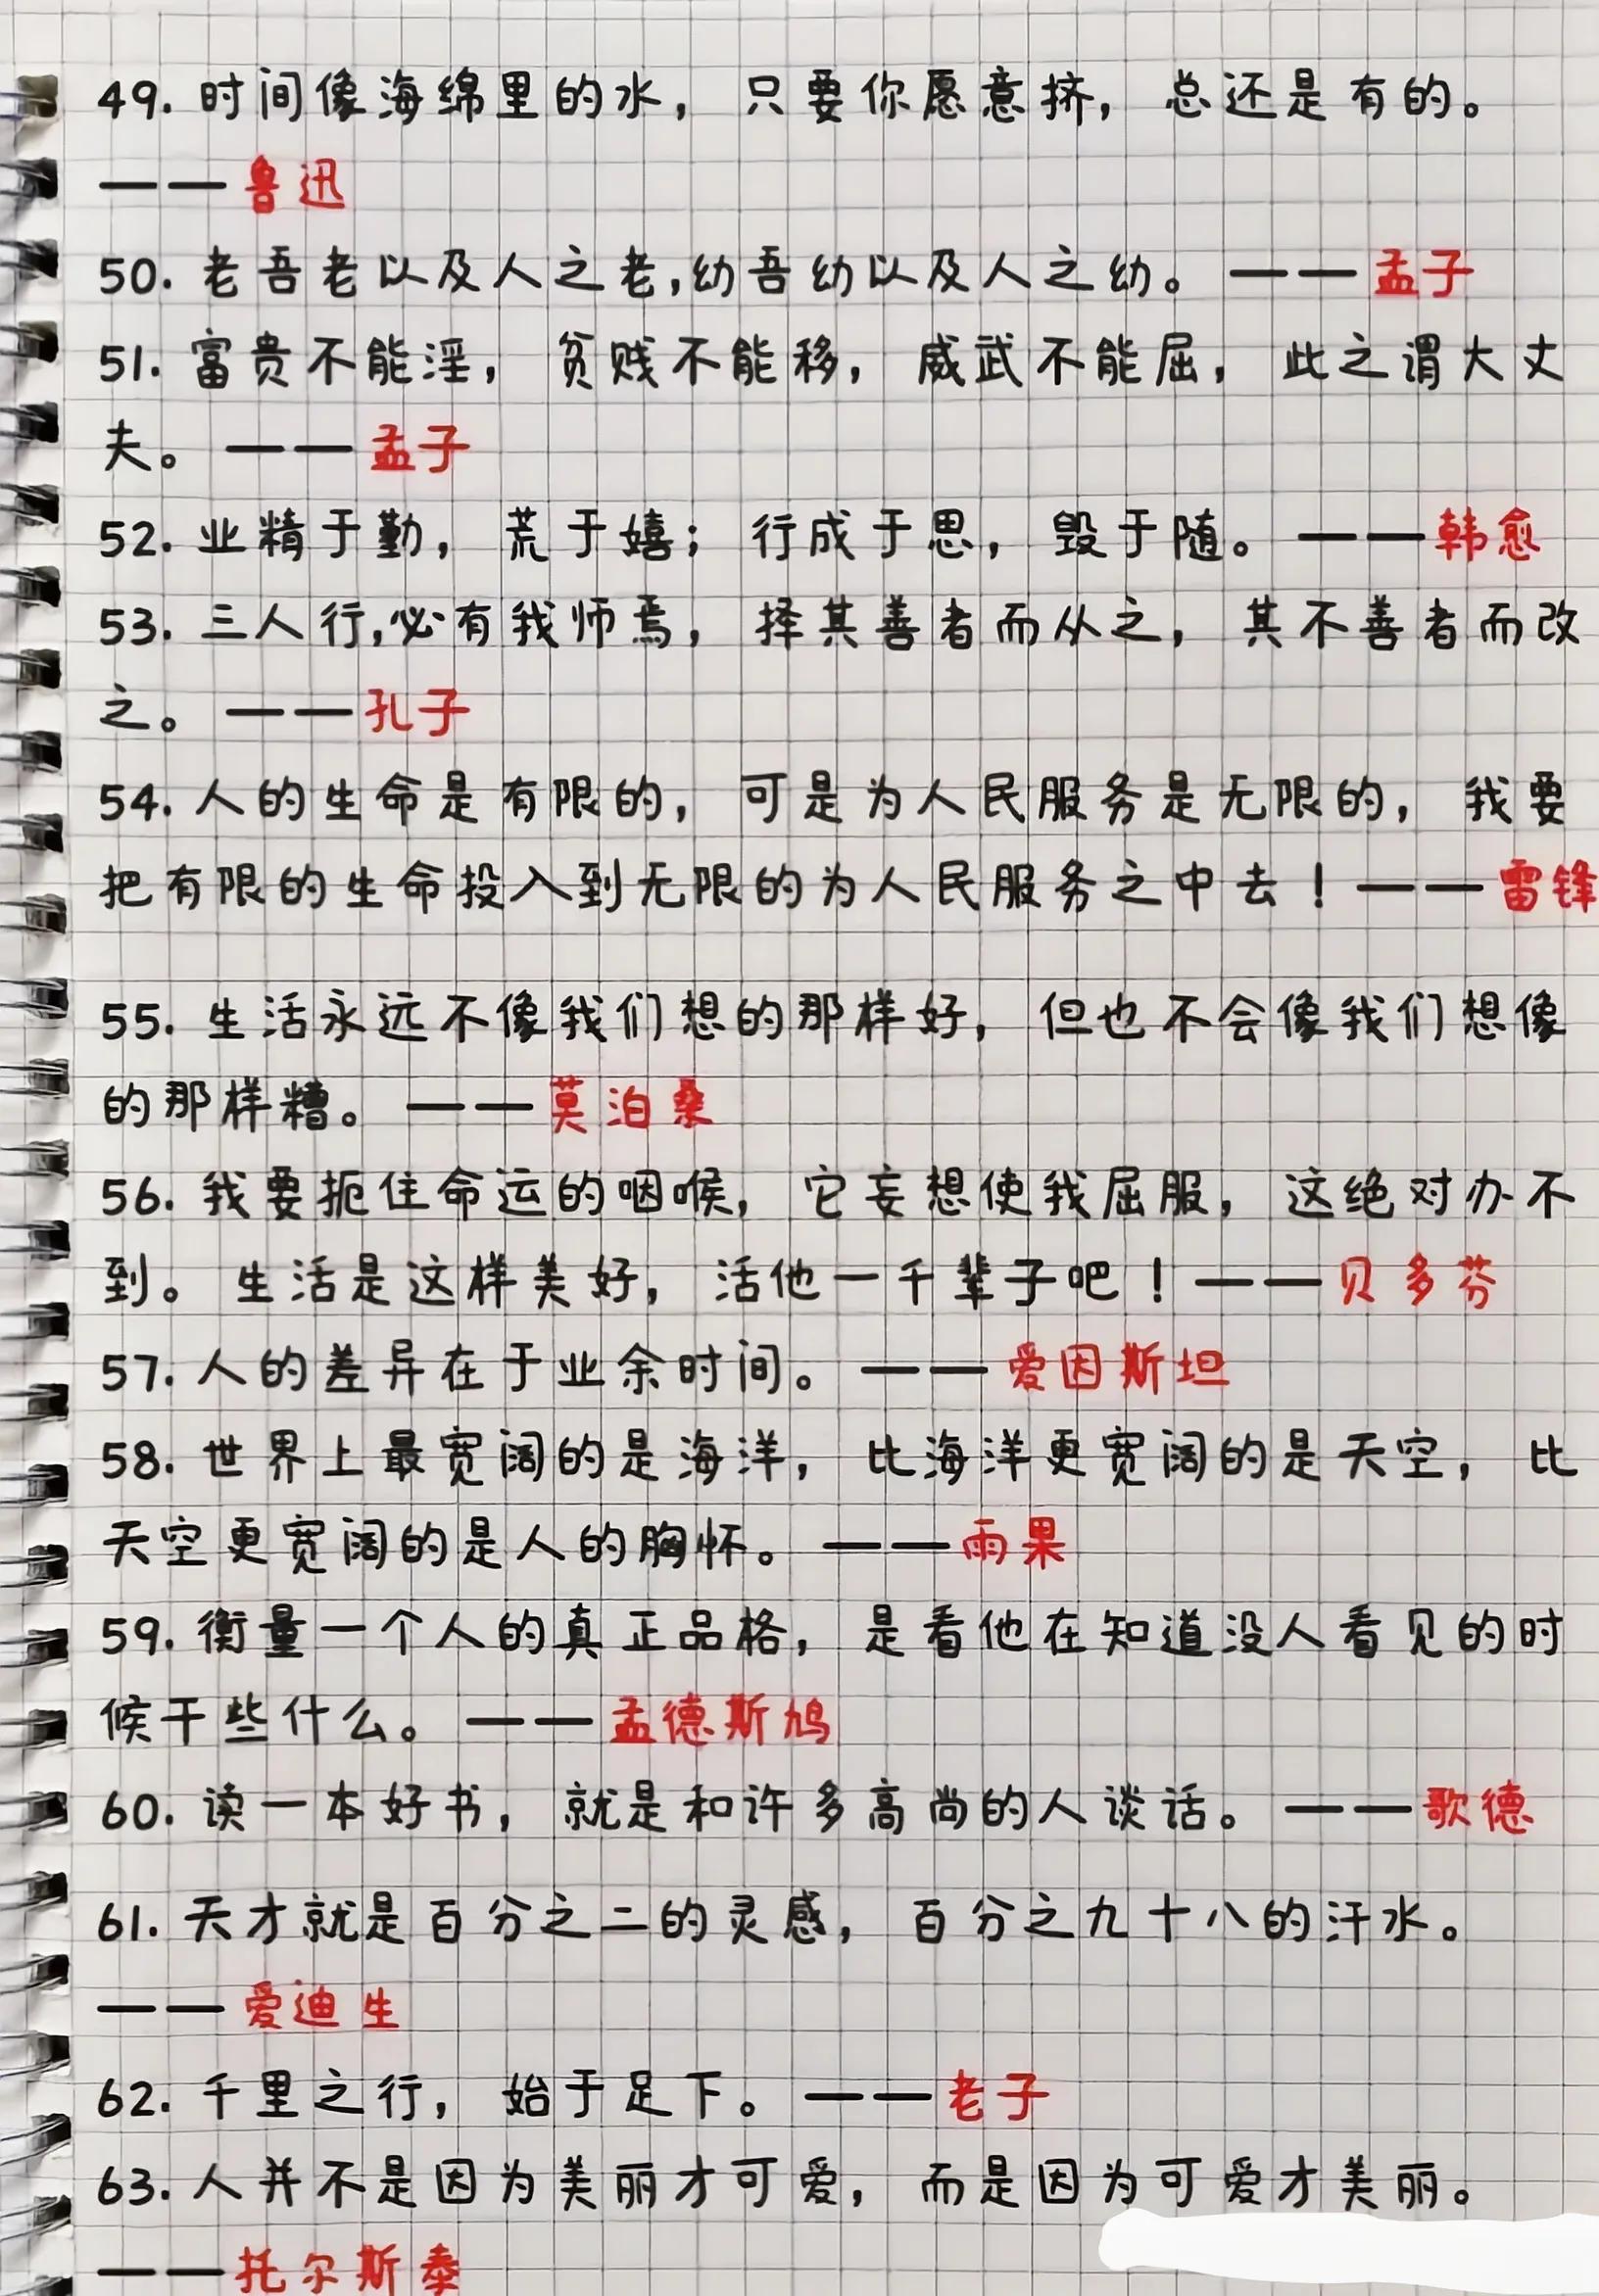 49. 时间像海绵里的水，只要你愿意挤，总还是有的。
——鲁迅
50. 老吾老以及人之老,幼吾幼以及人之幼。——孟子
51. 富贵不能淫，贫贱不能移，威武不能屈，此之谓大丈
夫。——孟子
52. 业精于勤，荒于嬉；行成于思，毁于随。——韩愈
53. 三人行,必有我师焉，择其善者而从之，其不善者而改
之。——孔子
54. 人的生命是有限的，可是为人民服务是无限的，我要
把有限的生命投入到无限的为人民服务之中去！——雷锋
55. 生活永远不像我们想的那样好，但也不会像我们想像
的那样糟。——莫泊桑
56. 我要扼住命运的咽喉，它妄想使我屈服，这绝对办不
到。生活是这样美好，活他一千辈子吧！——贝多芬
57. 人的差异在于业余时间。——爱因斯坦
58. 世界上最宽阔的是海洋，比海洋更宽阔的是天空，比
天空更宽阔的是人的胸怀。——雨果
59. 衡量一个人的真正品格，是看他在知道没人看见的时
候干些什么。——孟德斯鸠
60. 读一本好书，就是和许多高尚的人谈话。——歌德
61. 天才就是百分之二的灵感，百分之九十八的汗水。
——爱迪生
62. 千里之行，始于足下。——老子
63. 人并不是因为美丽才可爱，而是因为可爱才美丽。
——托尔斯泰